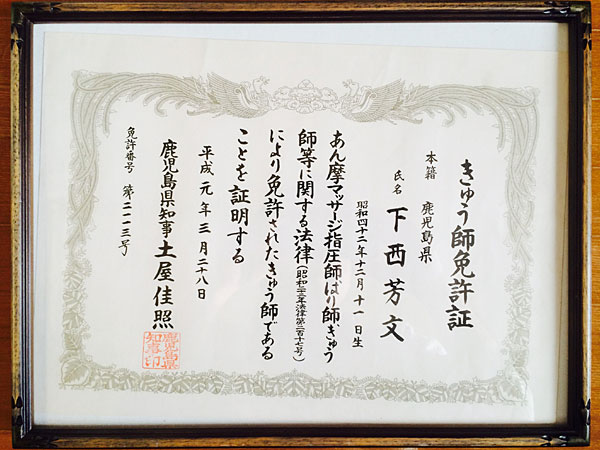 きゅう師免許証
本籍 鹿児島県
氏名 下西芳文
昭和四十二年十二月十一日生
あん摩マッサージ指圧師はり師きゅう
師等に関する法律(昭和二十二年法律第二百十七号)
により免許されたきゅう師である
ことを証明する
平成元年三月二十八日
鹿児島県知事 土屋佳照
鹿児島県知事印
免許番号 第二一一三号